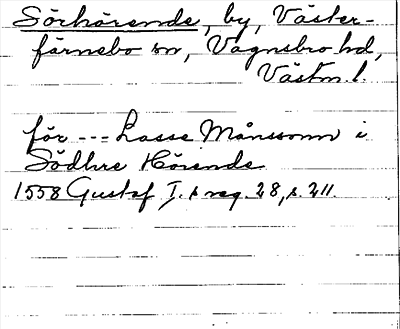 Sörhörende, by, Väster-
färnebo sn, Vagnsbro hd,
Västm. l.
för --- Lasse Månssonn i
Södhre Hörende
1558 Gustaf I.s reg. 28, s. 211.